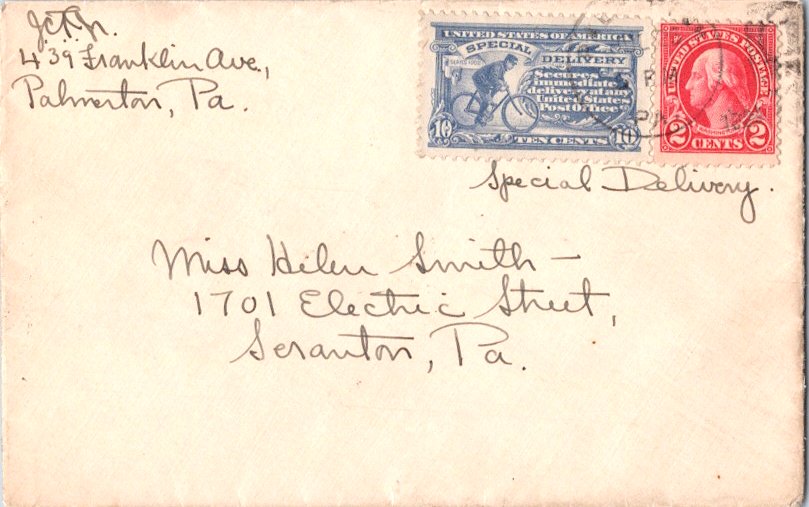 439 Franklin Ave.,
Palmerton, Pa.
UNITED STATES OF AMERICA
SPECIAL DELIVERY
SERIES 1902
Secures
immediate
delivery at any
United States
Post Office
10 10
TEN CENTS
UNITED STATES POSTAGE
WASHINGTON
2 2
CENTS
Special Delivery.
Miss Helen Smith –
1701 Electric Street,
Scranton, Pa.